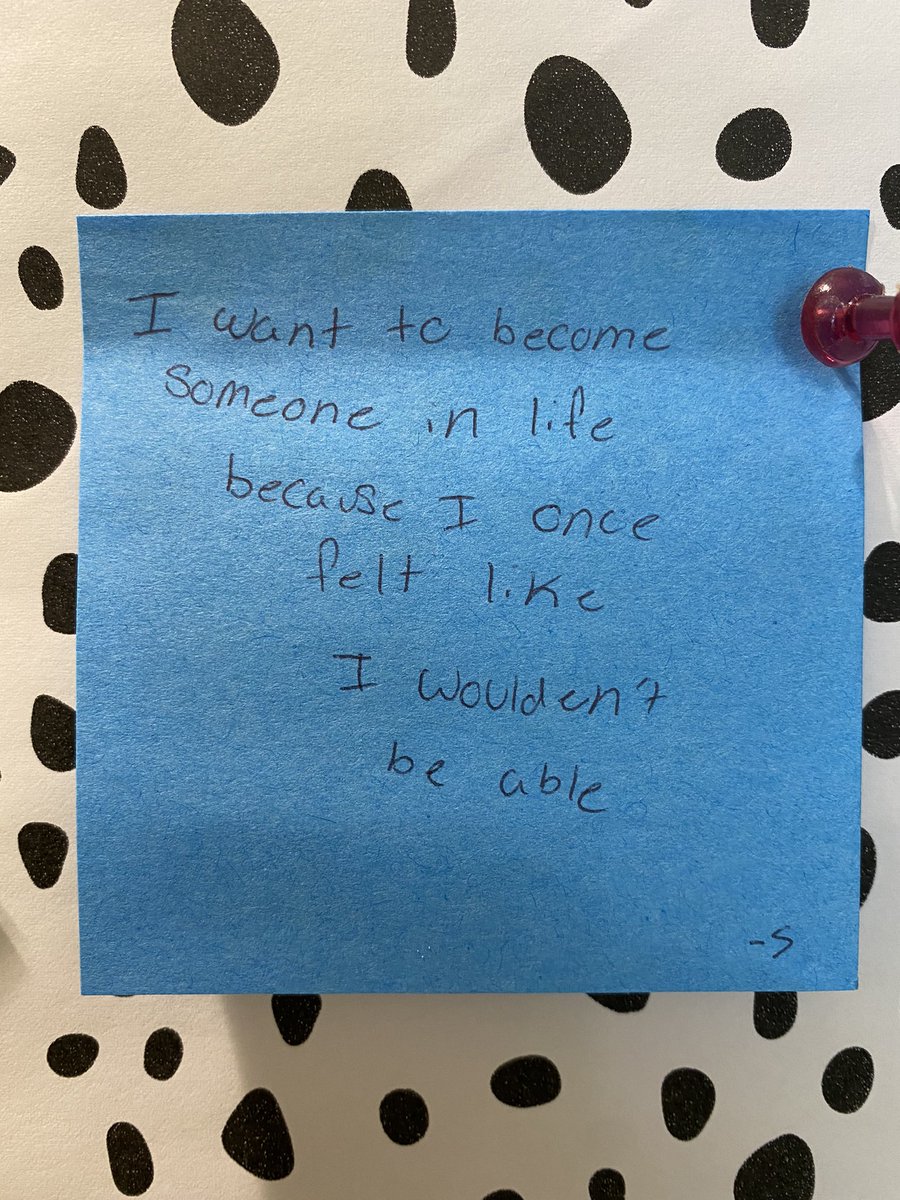 I want to become
someone in life
because I once
felt like
I woulden't
be able
-S